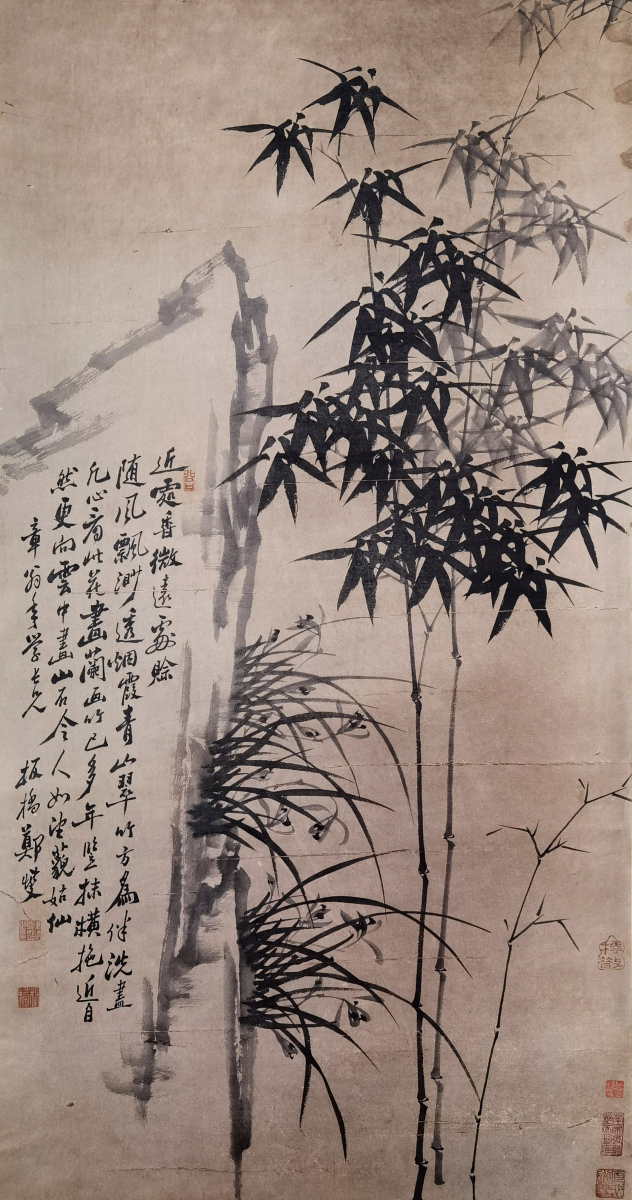 近處香微遠處賒
随風飄渺透烟霞青山翠竹方為伴洗盡
凡心看此花畫蘭画竹已多年竪抹横拖近自
然更向雲中畫山石令人如望藐姑仙
章翁年学長兄
板橋鄭燮